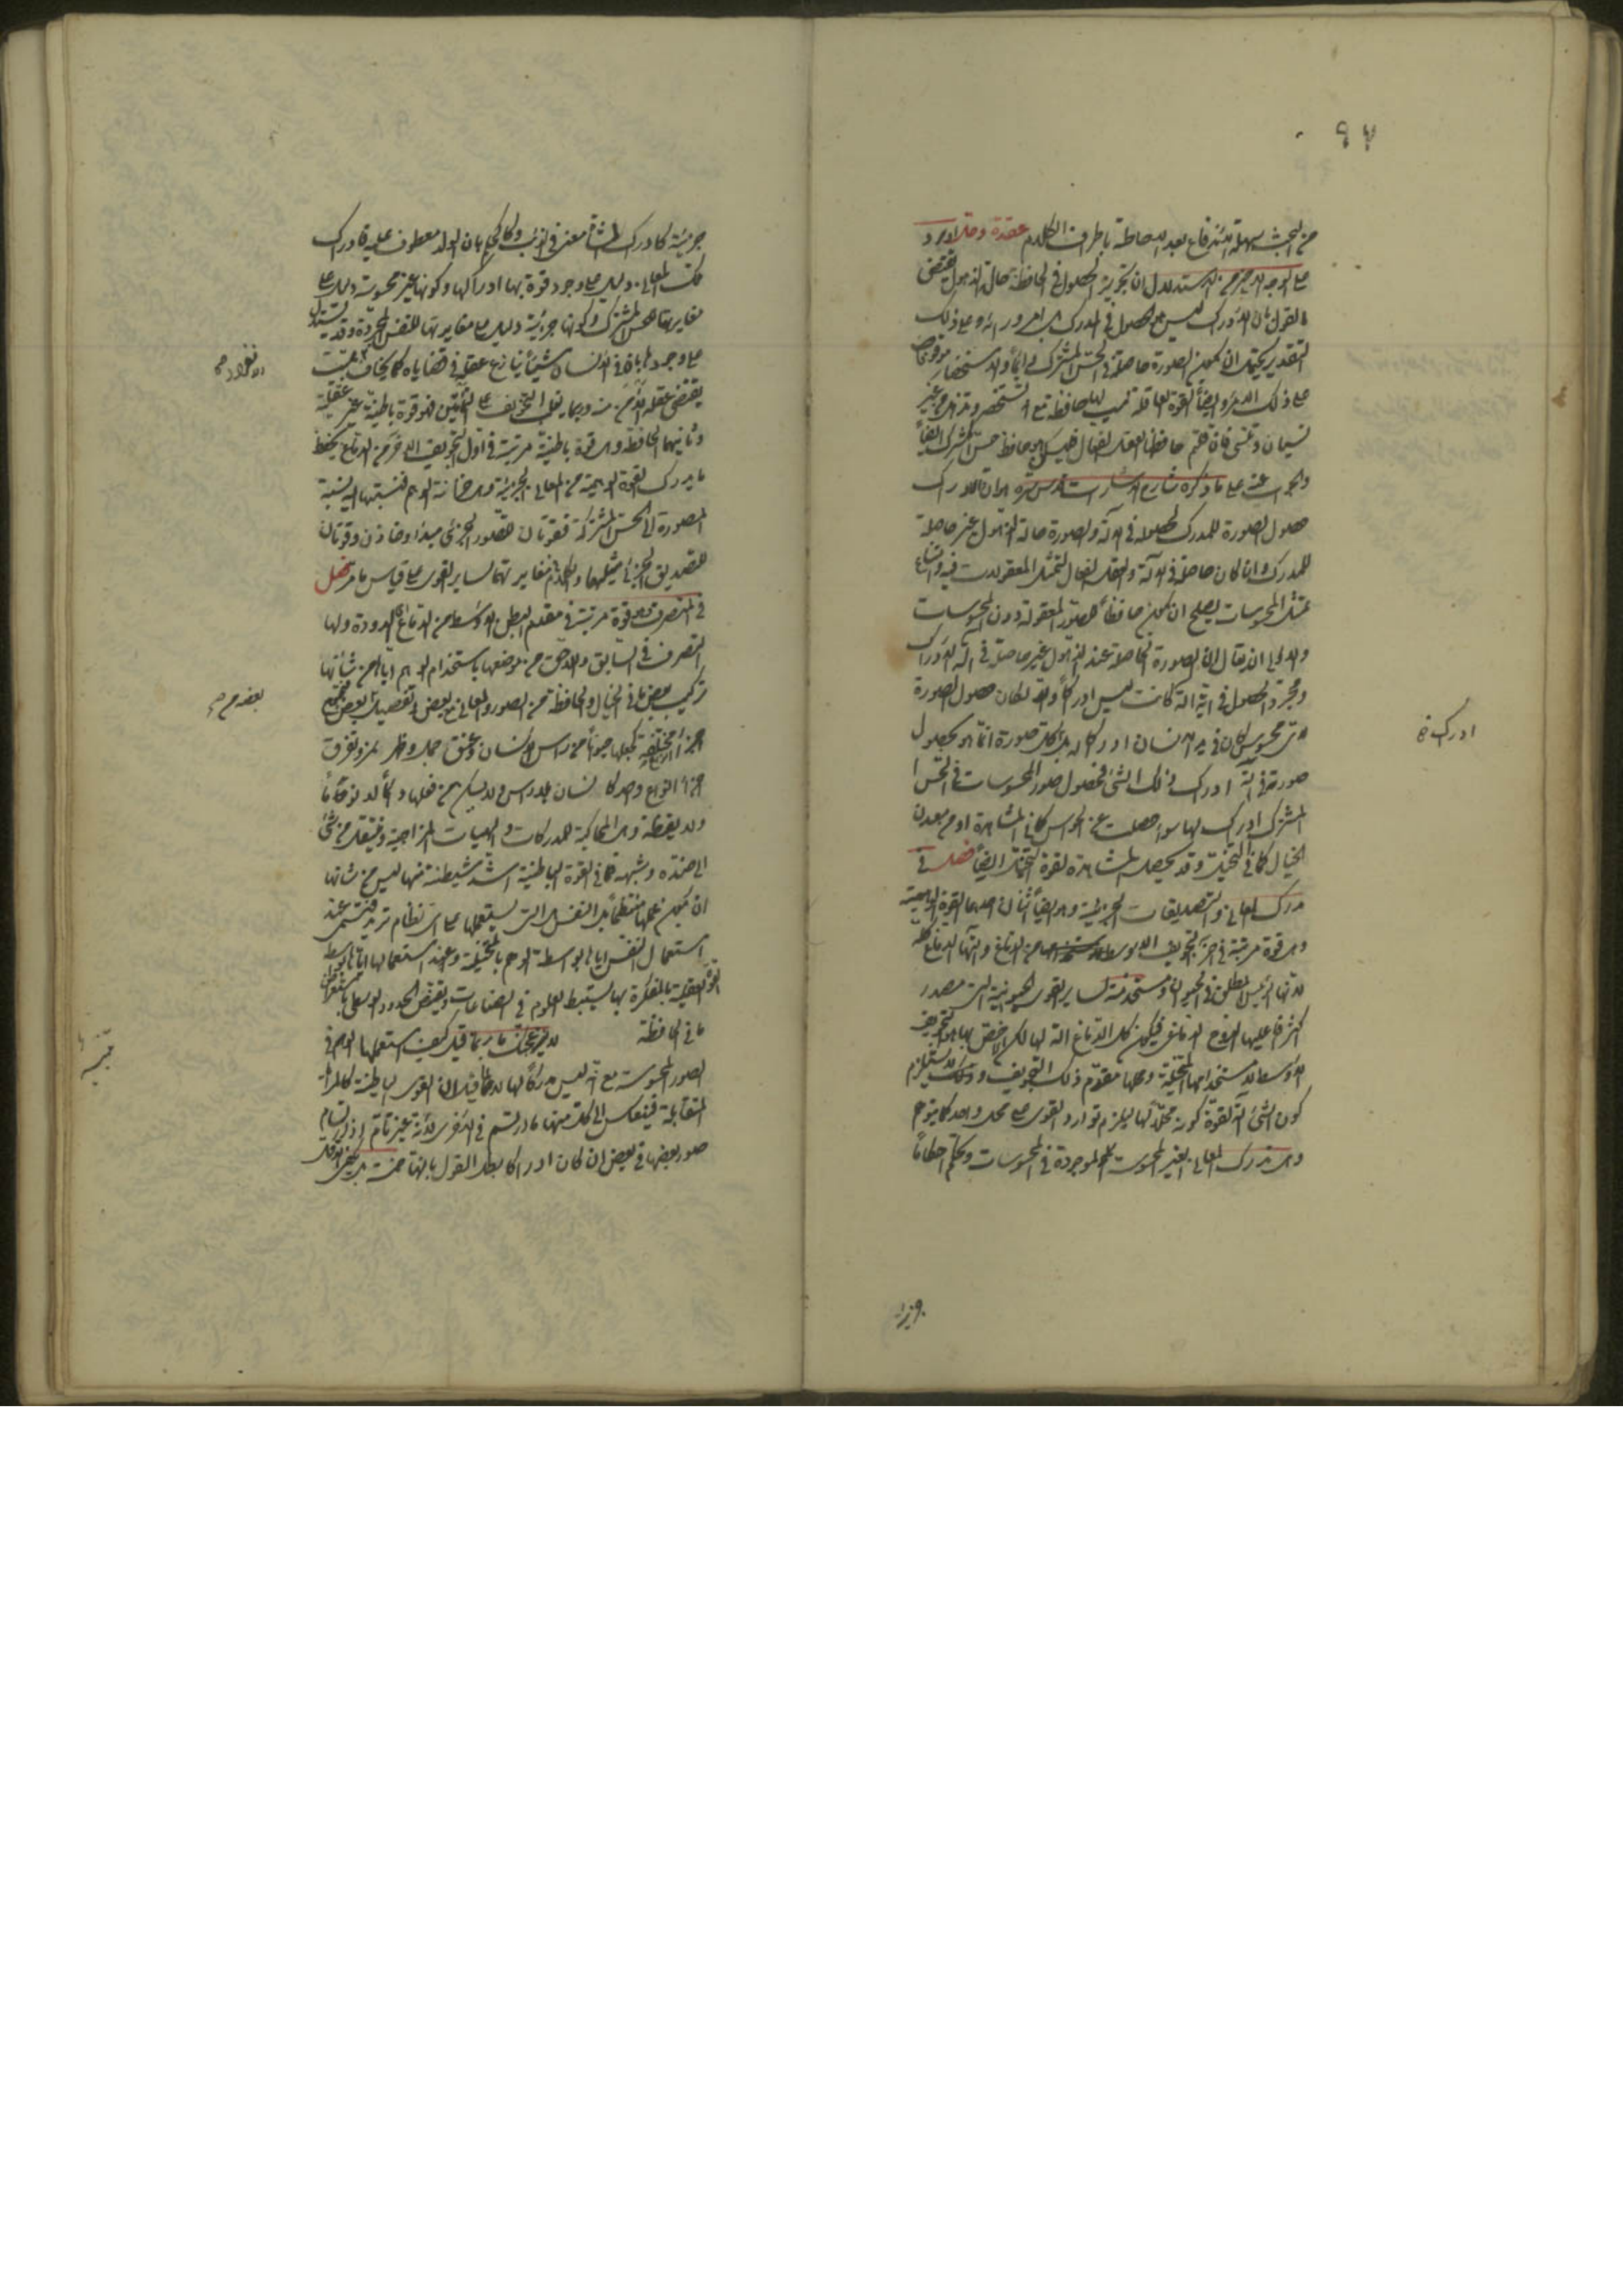 ٩٧
من البحث سهلة الاندفاع بعد الاحاطة باطراف الكلام عقدة وحل الايراد
على الوجه الاخير من الاستدلال ان تجويز الحصول في الحافظة حالة الذهول يقتضي
القول بان الادراك ليس هو الحصول في المدرك بل امر وراءه وعلى ذلك
التقدير يحتمل ان يكون الصورة حاصلة في الحس المشترك دائما والاستحضار موقوفا
على ذلك الامر وايضا القوة العاقلة ليس لها حافظة مع انها تستحضر وتذهل من غير
نسيان وتنسى فان قلتم حافظها العقل الفعال فليكن هو حافظ حس المشترك ايضا
والجواب عنه على ما ذكره شارح الاشارات قدس سره ان الادراك
حصول الصورة للمدرك لحصوله في الآلة والصورة حالة الذهول غير حاصلة
للمدرك وان كان حاصلة في الآلة والعقل الفعال لتمثل المعقولات فيه وامتناع
تمثل المحسوسات يصلح ان يكون حافظا للصور المعقولة دون المحسوسات
والاولى ان يقال ان الصورة الحاصلة عند الذهول غير حاصلة في آلة الادراك
ومجرد الحصول في اية آلة كانت ليس ادراكا والا لكان حصول الصورة
اي محسوس كان في يد الانسان ادراكا له بل ادراك كل صورة انما هو بحصول
صورته في آلة ادراك ذلك الشيء فحصول صور المحسوسات في الحس
المشترك ادراك لها سواء حصلت عن الحواس كما في المشاهدة او من معدن
الخيال كما في التخيل وقد يحصل المشاهدة لقوة التخيل ايضا فصل في
مدرك المعاني والتصديقات الجزئية وهو ايضا اثنان احدهما القوة الواهمية
وهي قوة مرتبة في آخر التجويف الاوسط من الدماغ وآلتها الدماغ كله
لانها الرئيس المطلق في الحيوان ومستخدمة لساير القوى الحيوانية التي مصدر
اكثر افاعيلها الروح الدماغي فيكون كل الدماغ آلة لها لكن الاخص بها هو التجويف
الاوسط لاستخدامها المتخيلة ومحلها مقدم ذلك التجويف ولا يستلزم
كون الشيء آلة لقوة كونه محلا لها ليلزم توارد القوى على محل واحد كما يتوهم
وهي تدرك المعاني الغير المحسوسة الموجودة في المحسوسات وتحكم احكاما
ادراك خ
جزئية
جزئية كادراك الشاة معنى في الذئب وكالحكم بان الولد معطوف عليه فادراك
تلك المعاني دليل على وجود قوة بها ادراكها وكونها غير محسوسة دليل على
مغايرتها للحس المشترك وكونها جزئية دليل على مغايرتها للنفس المجردة وقد يستدل
على وجودها بان في الانسان شيئا ينازع عقله في قضاياه كما يخاف من ميت
يقتضي عقله الامن منه وربما يغلب التخويف على التأمين فهو قوة باطنية غير عقلية
وثانيهما الحافظة وهي قوة باطنية مرتبة في اول التجويف الاخر من الدماغ يحفظ
ما يدرك القوة الوهمية من المعاني الجزئية وهي خزانة الوهم فنسبتها اليه نسبة
المصورة الى الحس المشترك فقوتان للتصور الجزئي مبدأ وخازن وقوتان
للتصديق الجزئي مثلهما والكلام في مغايرتهما لساير القوى على قياس ما مر فصل
في المتصرف وهو قوة مرتبة في مقدم البطن الاوسط من الدماغ الدودة ولها
التصرف في السابق واللاحق من موضعها باستخدام الوهم اياها من شأنها
تركيب بعض ما في الخيال والحافظة من الصور والمعاني مع بعض وتفصيل بعض فتجمع
اجزاء انواع مختلفة كجعلها حيوانا من راس انسان وعنق جمل وظهر نمر وتفرق
اجزاء انواع واحد كانسان بلا راس ولا يسكن عن فعلها دائما لا نوما
ولا يقظة وهي المحاكية للمدركات والهيات المزاجية وتنتقل من شيء
الى ضده وشبهه فما في القوة الباطنية اشد شيطنة منها ليس من شأنها
ان يكون عملها منتظما بل النفس التي يستعملها على اي نظام تريد فتسمى عند
استعمال النفس اياها بواسطة الوهم بالمتخيلة وعند استعمالها اياها بواسطة
القوة العقلية بالمفكرة بها يستنبط العلوم في الصناعات وتقتنص الحدود الوسطى باستعراض
ما في الحافظة لا يزعجنك ما ربما قيل كيف استعملها الوهم في
الصور المحسوسة مع انه ليس مدركا لها لا لما قيل ان القوى الباطنية كالمرايا
المتقابلة فينعكس الى كل منها ما ارتسم في الاخرى لانه غير تام اذ ارتسام
صور بعضها في بعض ان كان ادراكا بطل القول بانها خمسة
بعضه مع
تنبيه